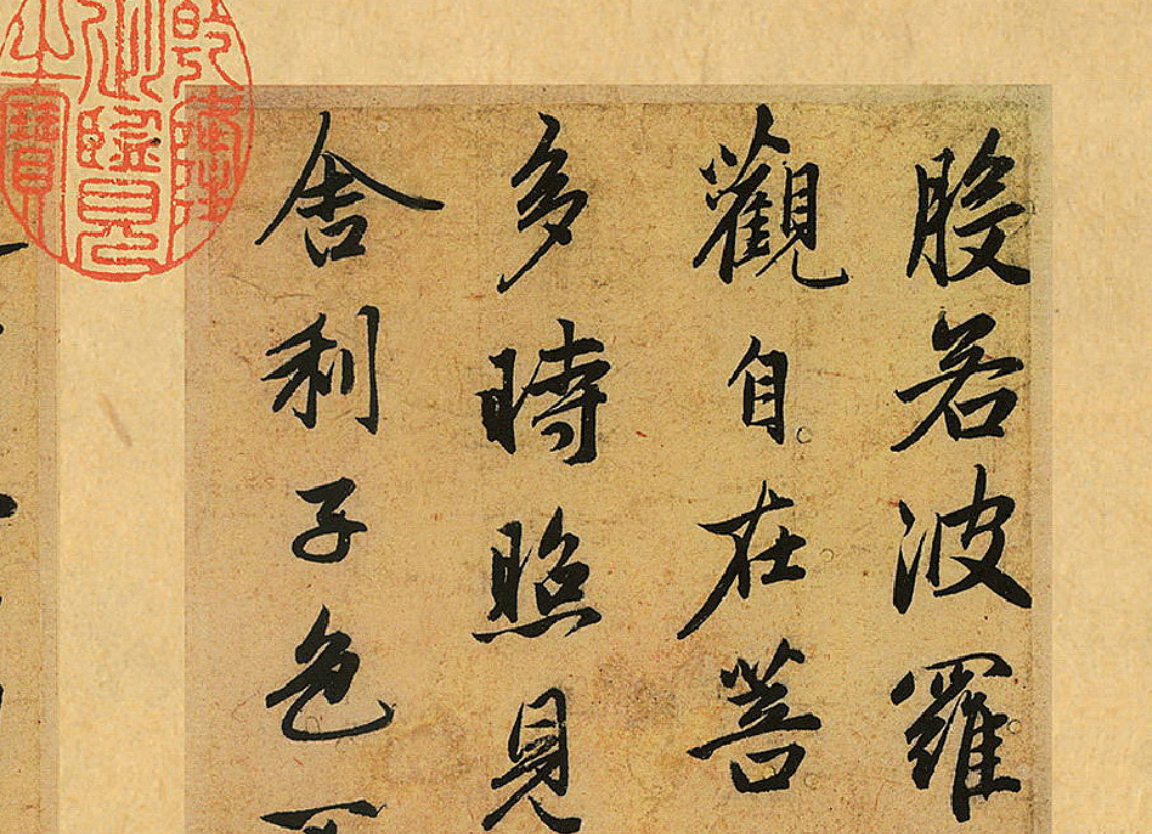 般若波羅
觀自在菩
多時照見
舍利子色
乾隆
御覽
之寶